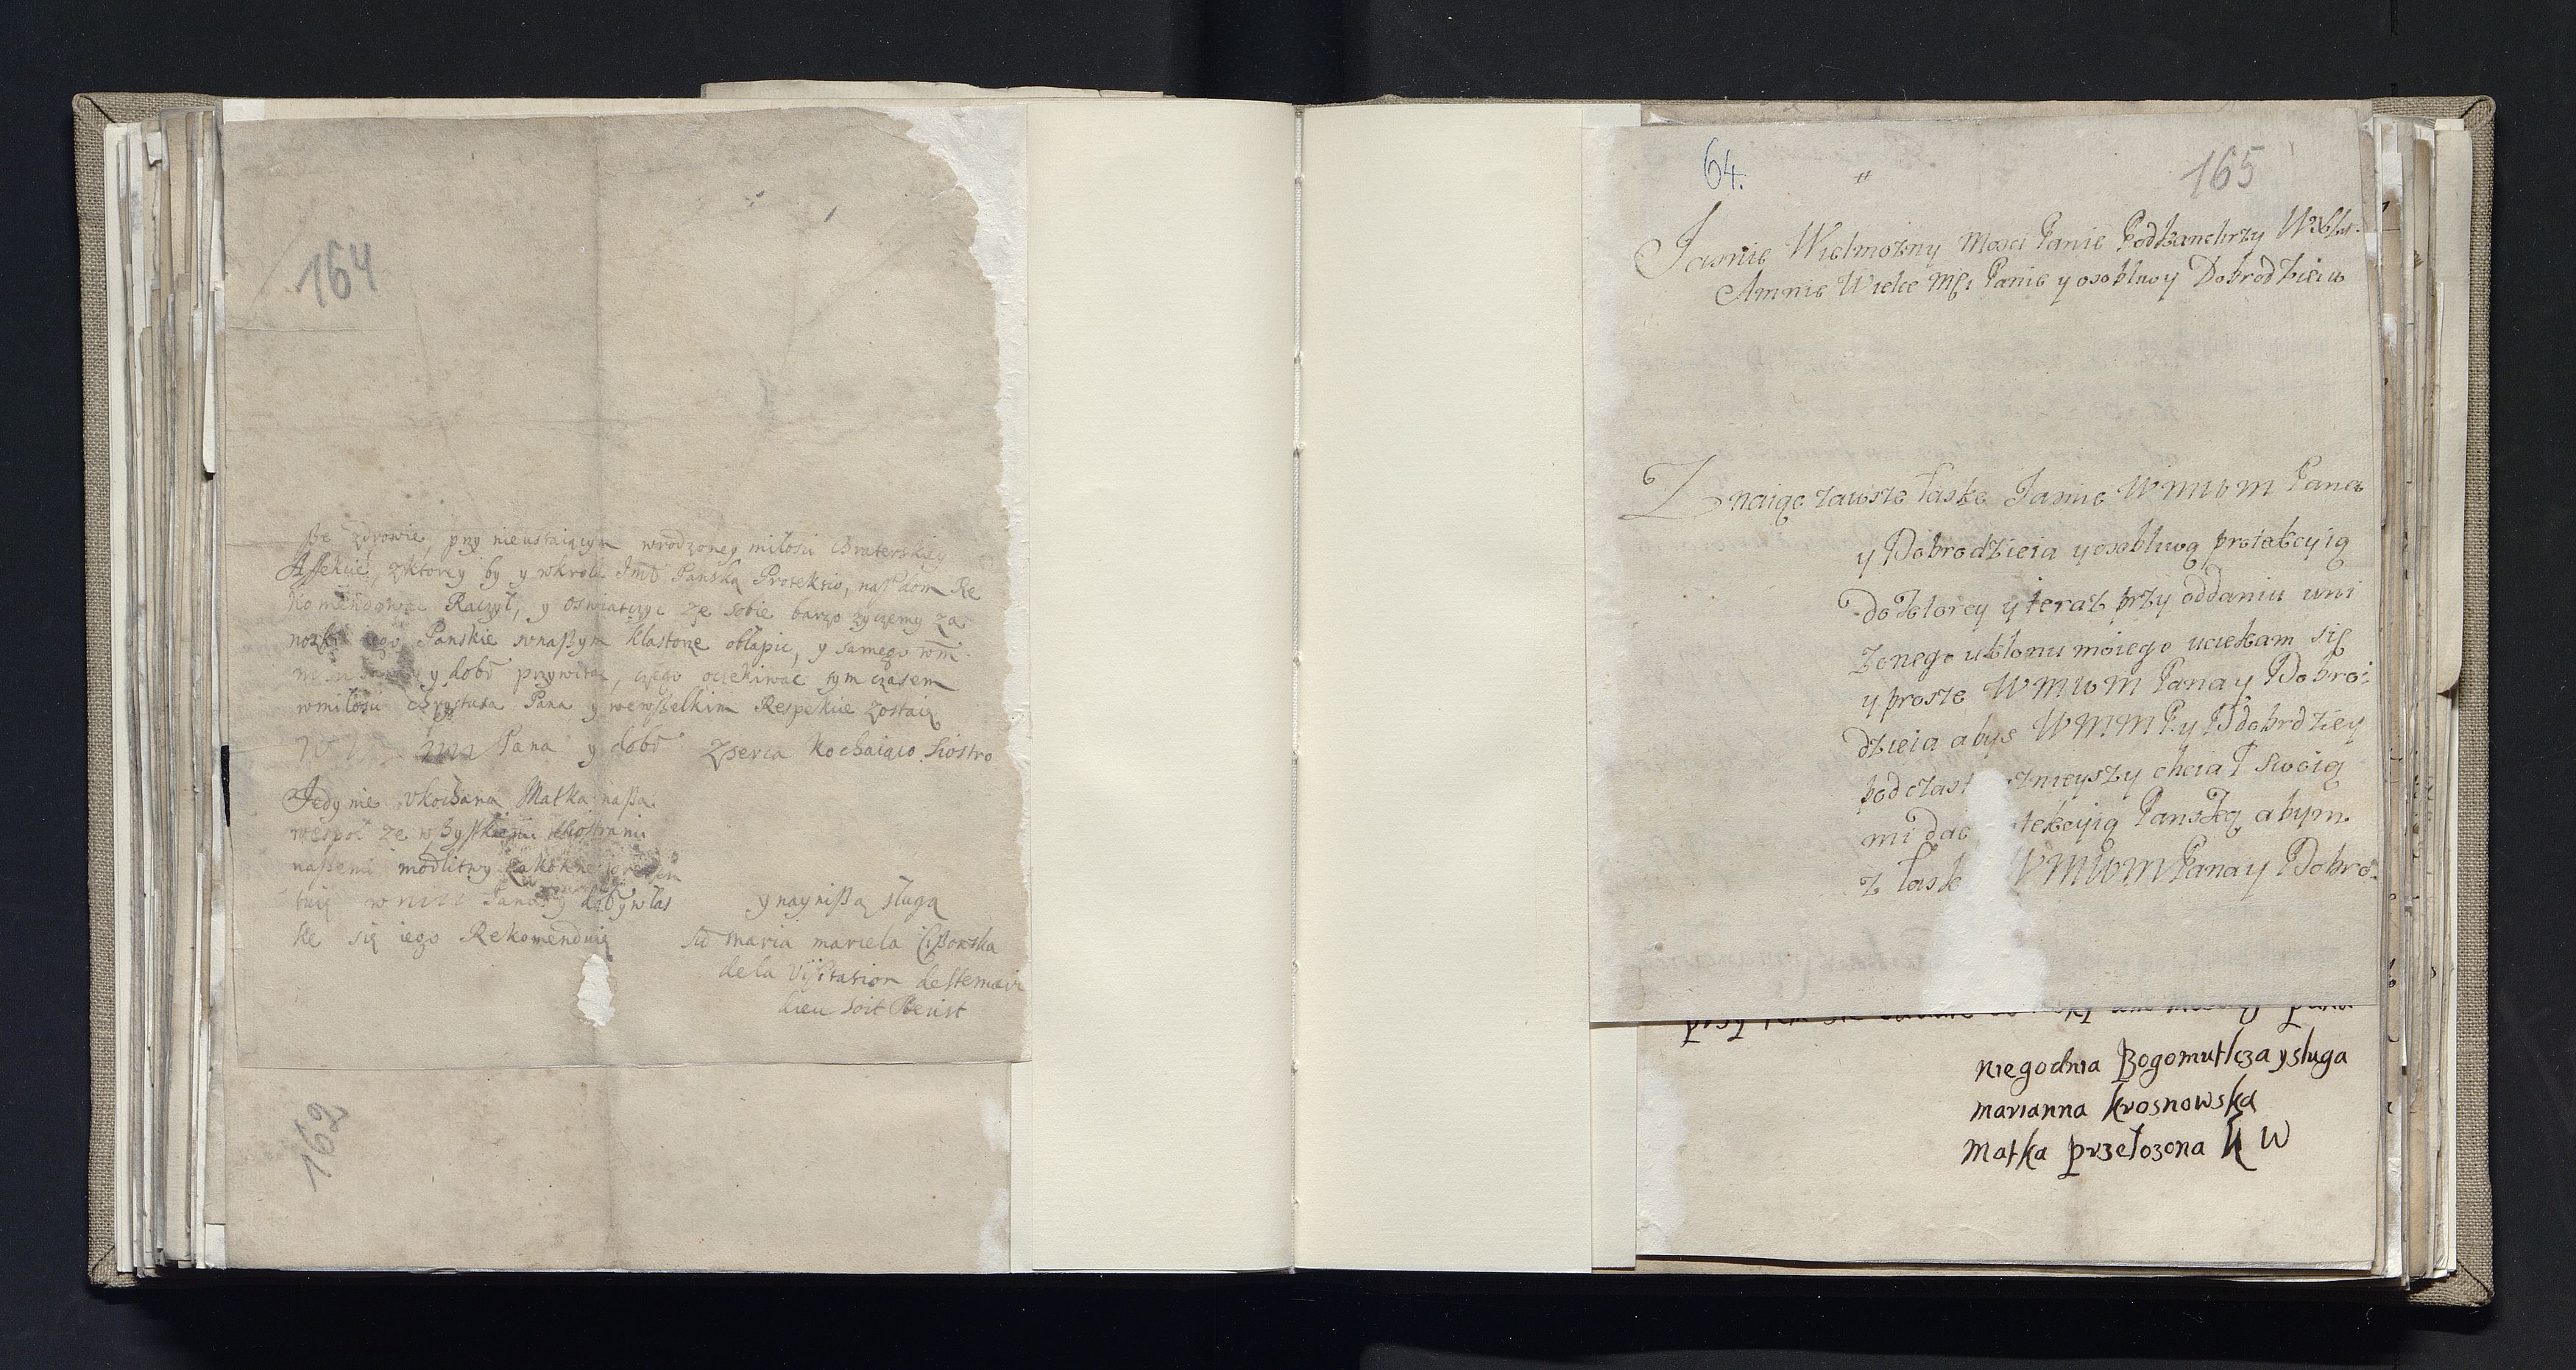 164
ße zdrowie, przy nieustaiącym wrodzoney miłosci Braterskiey
Affekcie, zktorey by y wkrolu Jmć Pańską Protekcio, naß dom Re
komendowac Raczył, y oswiatczyc ze sobie barzo życzemy za
nozki iego Panskie wnaßym klastorze obłapic, y samego wm̃
y dobr̃ przywitac, czego oczekiwac tym czasem
wmiłosci chrystusa Pana y wewßelkim Respekcie zostaię
Pana y dobr̃ zserca kochaiąco siostro
Jedynie vkochana Matka naßa
wespoł ze wßystkiemi Siostrami
naßemi modlitwy zakonne
Pana y dob̃ y w łas
ke się iego Rekomenduię
y naynißa sługa
Sio maria mariela Cißowska
de la Visitasion de Ste mari
dieu soit Benist
162
64.
165
Jasnie Wielmozny Mosci Panie Podkanclerzy
Amnie Wielce Msci Panie y osobliwy Dobrodzieiu
Znaiąc zawsze łaskę Jasnie WMMM Pana
y Dobrodzieia y osobliwą protekcyią
do ktorey y teraz przy oddaniu uni
zonego ukłonu moiego uciekam się
y prosze WMMM Pana y Dobro:
dzieia abys WMMM P y Ddobrdziey
pod czas znieyszy chciał swoią
mi dac tekcyią Panską abym
z łask WMMM Pana y Dobro:
niegodnia Bogomutlcza y sługa
marianna krosnowska
Matka przełozona K W